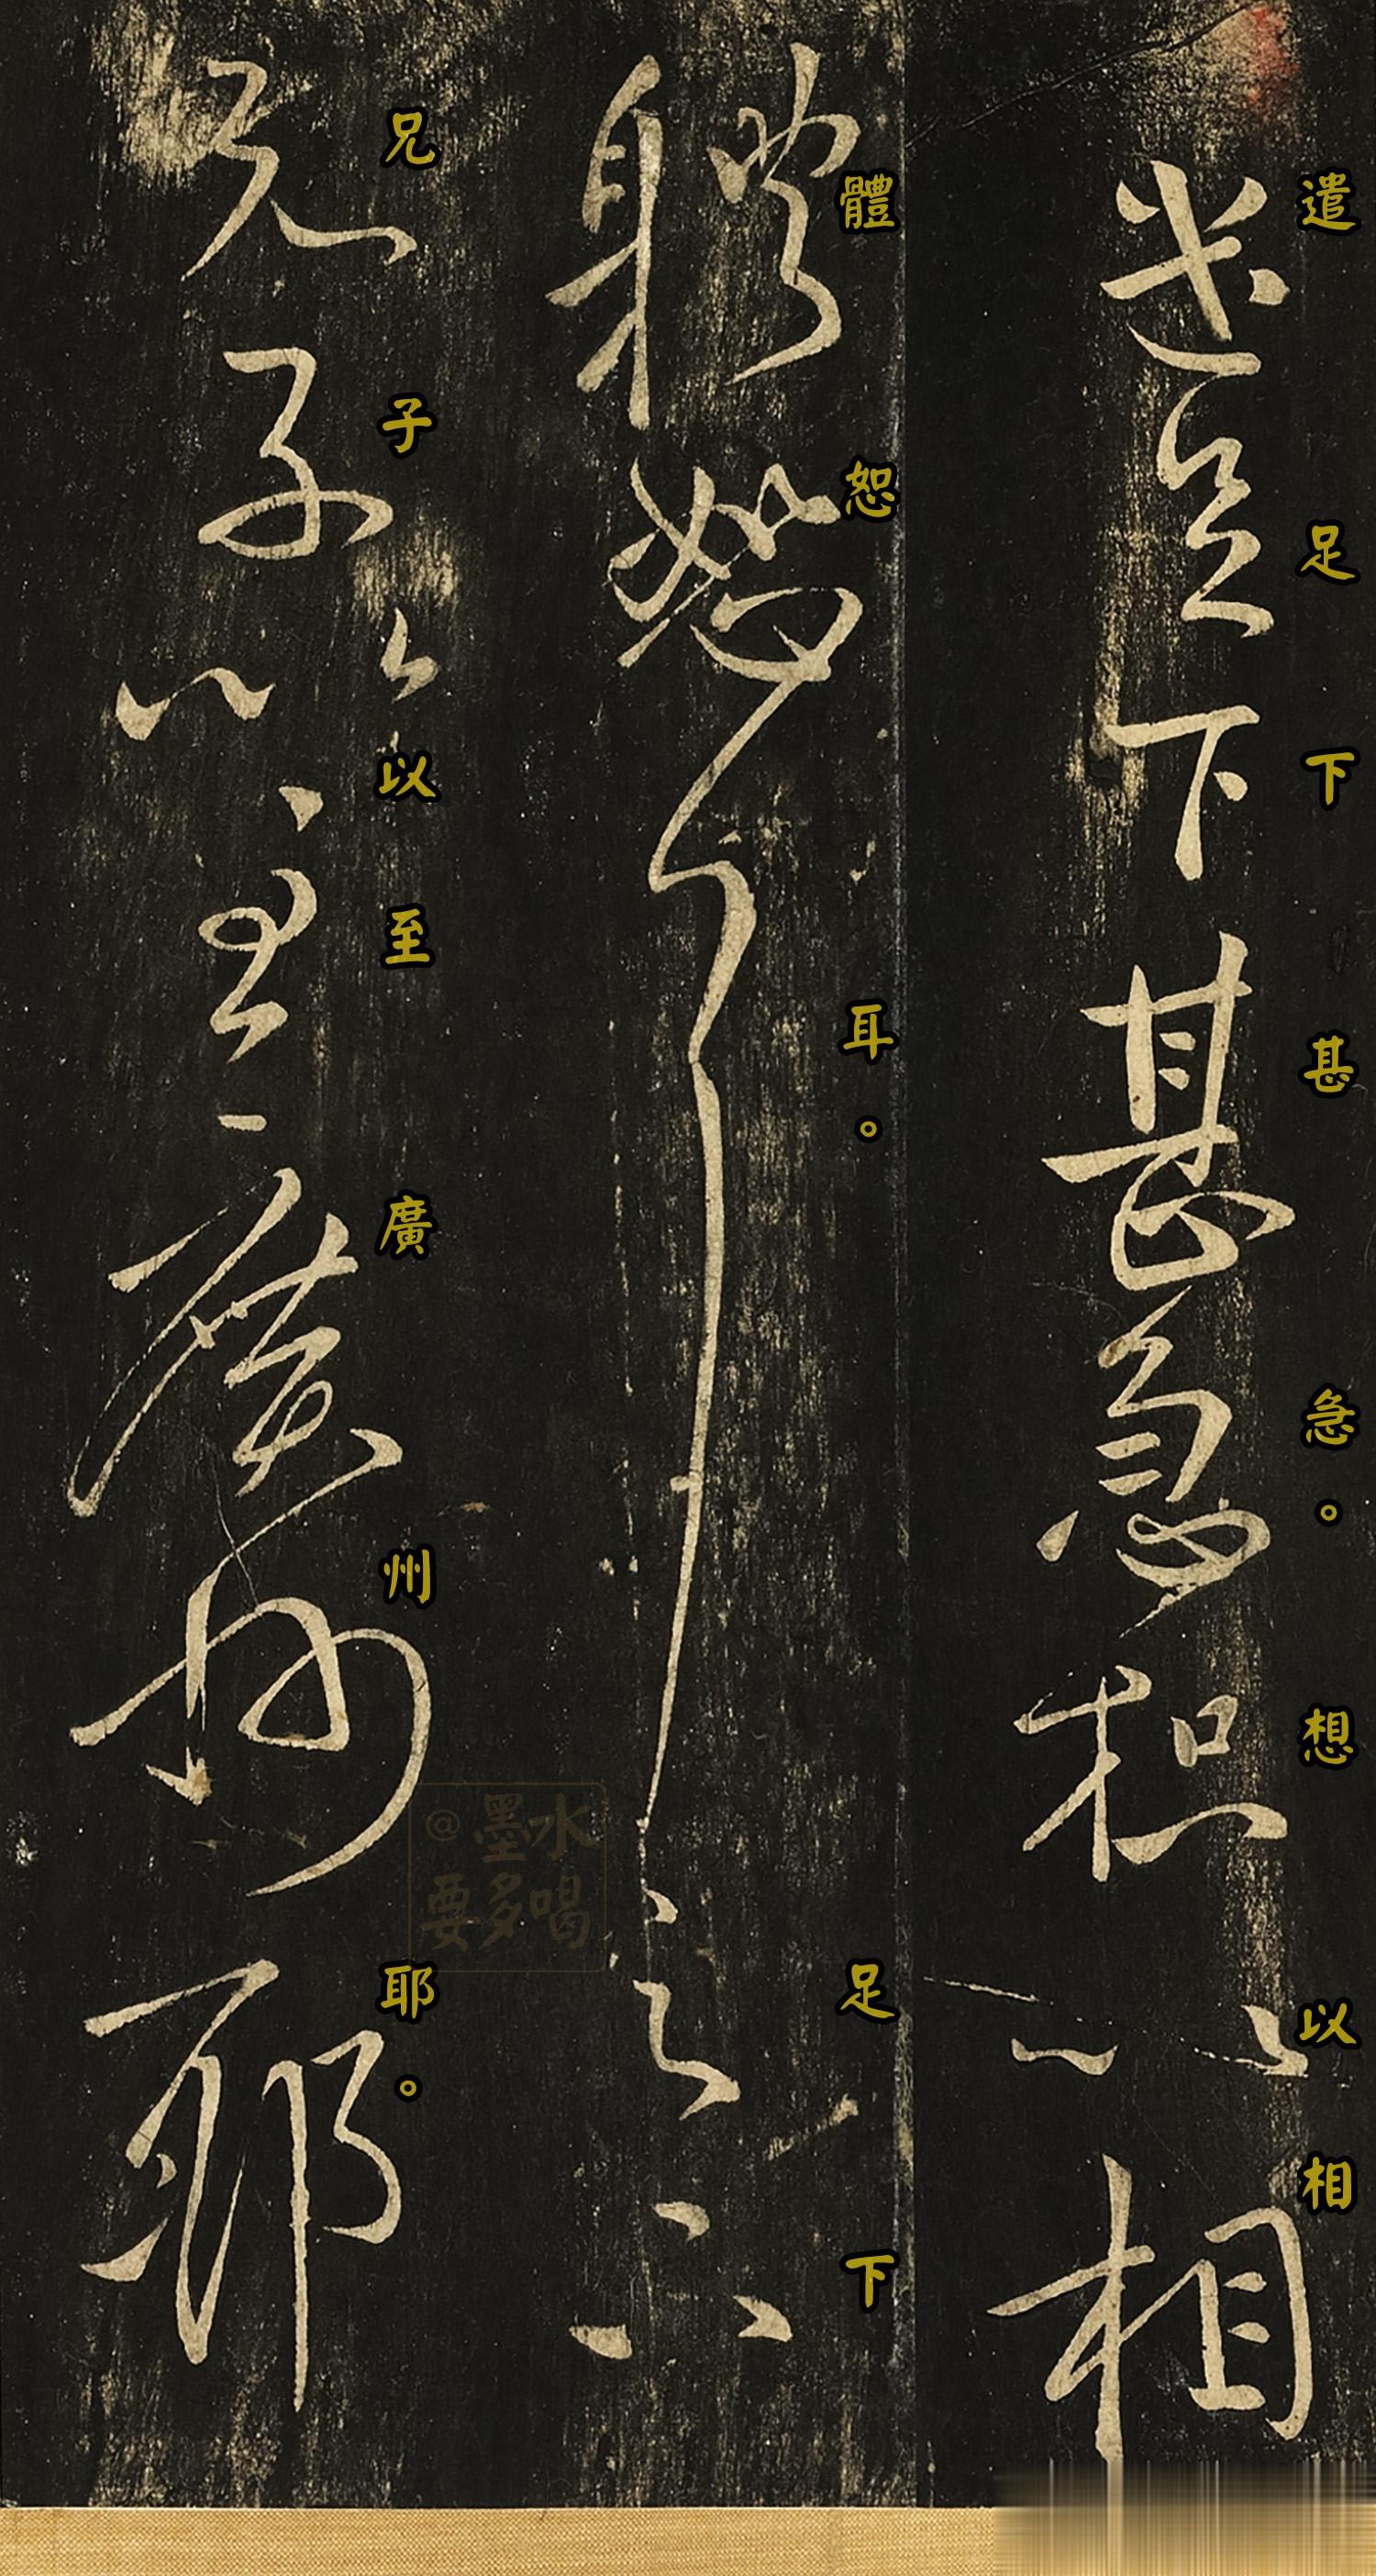 遣足下甚急。想以相
體恕耳。足下
兄子以至廣州耶。
@墨水
要多喝